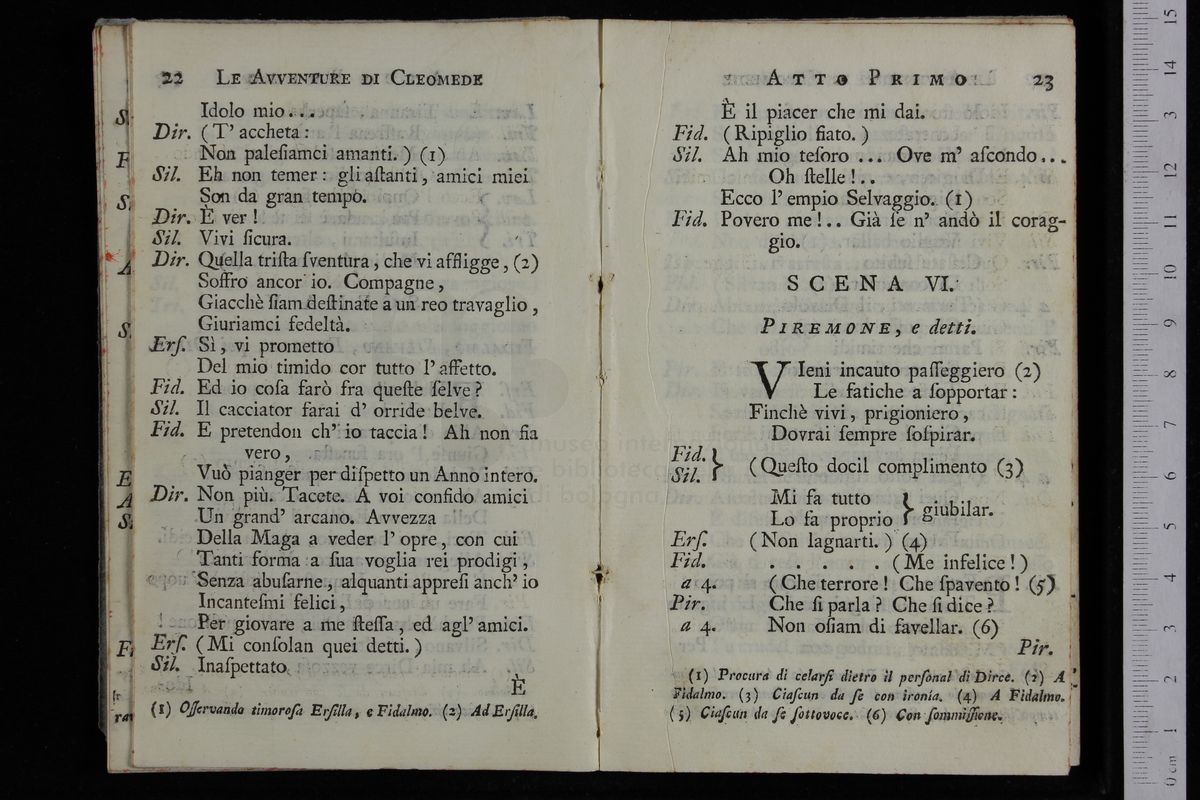 22 LE AVVENTURE DI CLEOMEDE
Idolo mio....
Dir. ( T' accheta :
Non paleſiamci amanti. ) (1)
Sil. Eh non temer : gli aſtanti , amici miei
Son da gran tempo.
Dir. È ver !
Sil. Vivi ſicura.
Dir. Quella triſta ſventura , che vi affligge , (2)
Soffro ancor io. Compagne ,
Giacchè ſiam deſtinate a un reo travaglio ,
Giuriamci fedeltà.
Erſ. Sì , vi prometto
Del mio timido cor tutto l' affetto.
Fid. Ed io coſa farò fra queſte ſelve ?
Sil. Il cacciator farai d' orride belve.
Fid. E pretendon ch' io taccia ! Ah non fia
vero ,
Vuò pianger per diſpetto un Anno intero.
Dir. Non più. Tacete. A voi confido amici
Un grand' arcano. Avvezza
Della Maga a veder l' opre , con cui
Tanti forma a ſua voglia rei prodigi ,
Senza abuſarne , alquanti appreſi anch' io
Incanteſmi felici ,
Per giovare a me ſteſſa , ed agl' amici.
Erſ. ( Mi conſolan quei detti. )
Sil. Inaſpettato
È
(1) Oſſervando timoroſa Erſilla , e Fidalmo. (2) Ad Erſilla.
ATTO PRIMO 23
È il piacer che mi dai.
Fid. ( Ripiglio fiato. )
Sil. Ah mio teſoro ... Ove m' aſcondo...
Oh ſtelle !..
Ecco l' empio Selvaggio. (1)
Fid. Povero me !.. Già ſe n' andò il corag-
gio.
SCENA VI.
PIREMONE, e detti.
VIeni incauto paſſeggiero (2)
Le fatiche a ſopportar :
Finchè vivi , prigioniero ,
Dovrai ſempre ſoſpirar.
Fid. } 
Sil. } ( Queſto docil complimento (3)
Mi fa tutto }
Lo fa proprio } giubilar.
Erſ. ( Non lagnarti. ) (4)
Fid. . . . . . . ( Me infelice ! )
a 4. ( Che terrore ! Che ſpavento ! (5)
Pir. Che ſi parla ? Che ſi dice ?
a 4. Non oſiam di favellar. (6)
Pir.
(1) Procura di celarſi dietro il perſonal di Dirce. (2) A
Fidalmo. (3) Ciaſcun da ſe con ironia. (4) A Fidalmo.
(5) Ciaſcun da ſe ſottovoce. (6) Con ſommiſſione.